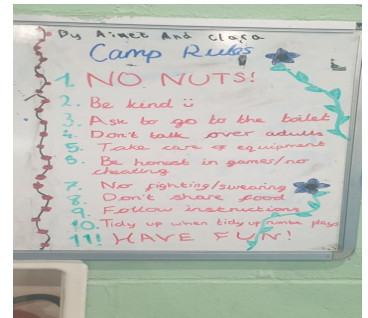 By Aimee And Clara
Camp Rules
1. NO NUTS!
2. Be kind ü
3. Ask to go to the toilet
4. Don't talk over adults
5. Take care of equipment
6. Be honest in games/no
cheating
7. No fighting/swearing
8. Don't share food
9. Follow instructions
10. Tidy up when tidy up plays
11! HAVE FUN!